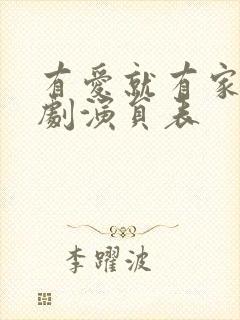 有愛就有家
劇演員表
李躍波